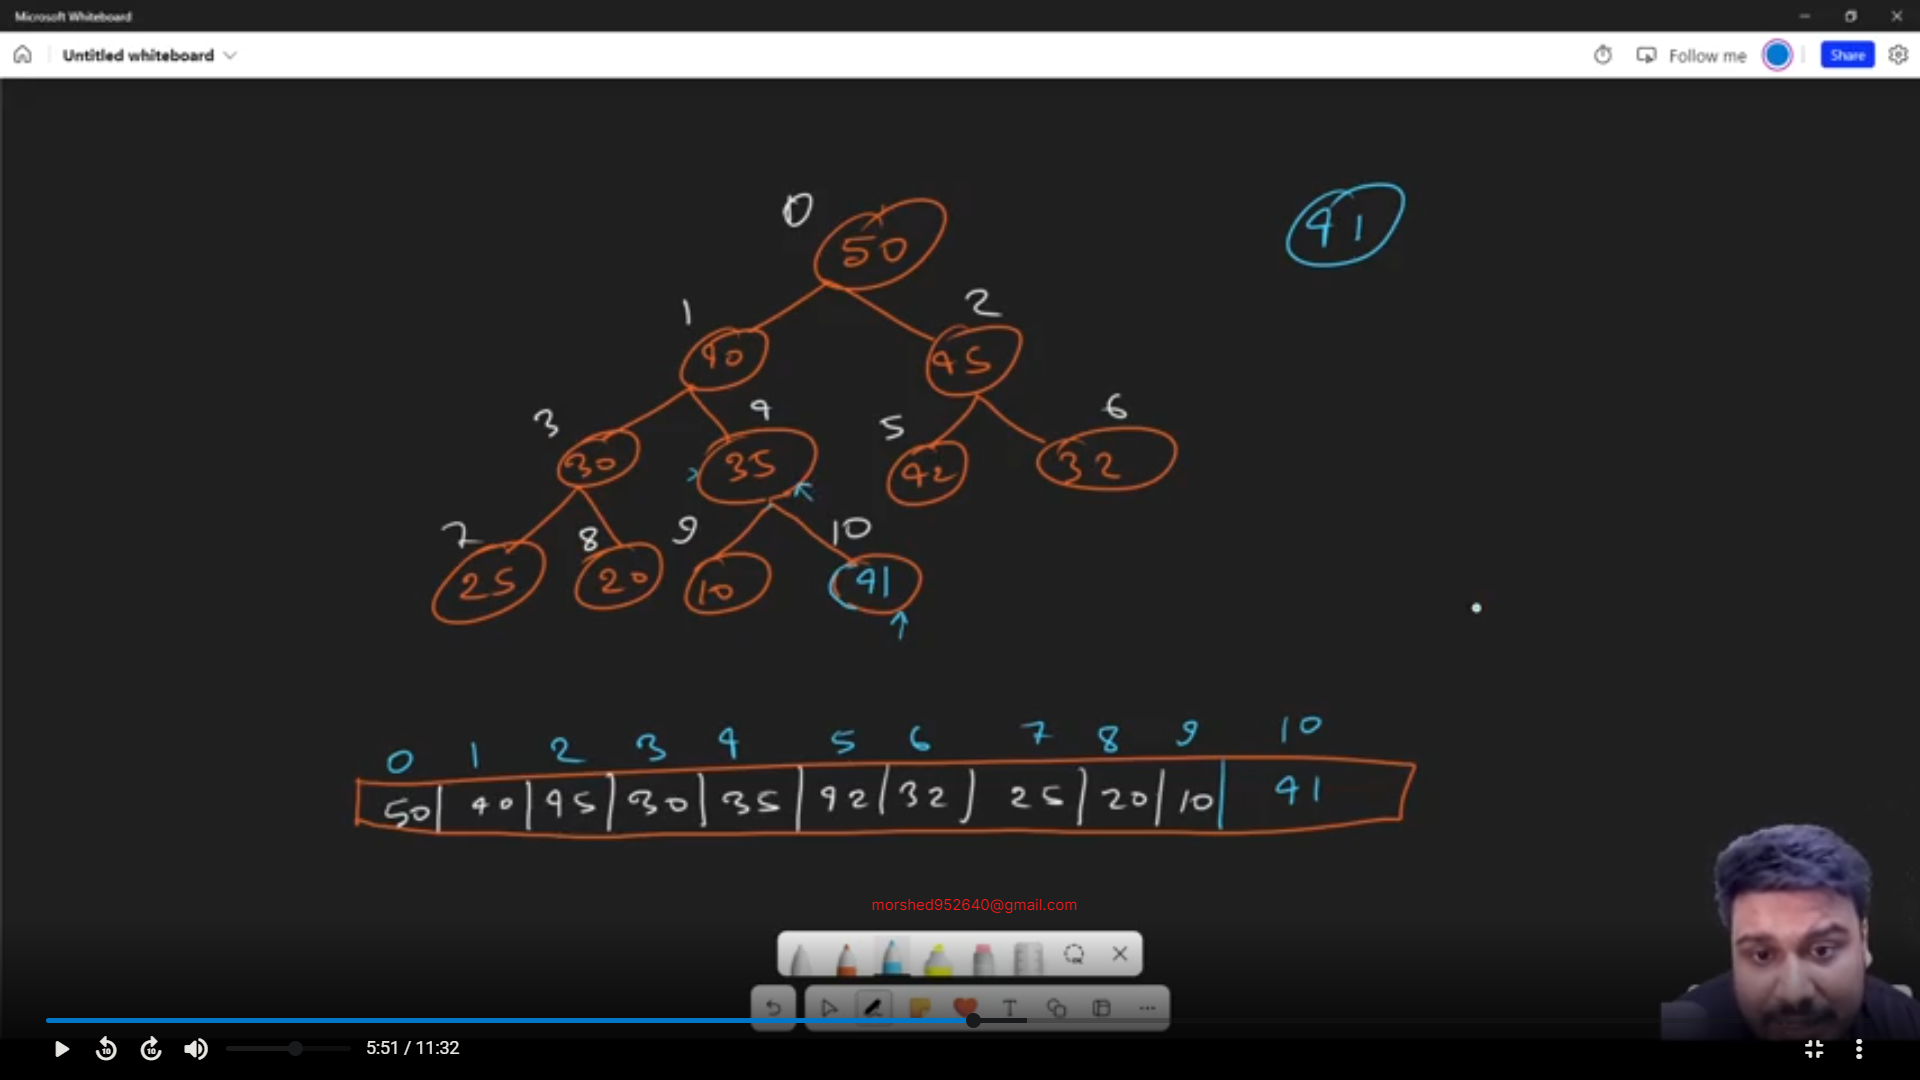 Microsoft Whiteboard
Untitled whiteboard
Follow me
Share
0
50
41
1
2
40
45
3
4
5
6
30
35
42
32
7
8
9
10
25
20
10
41
0 1 2 3 4 5 6 7 8 9 10
50 40 45 30 35 42 32 25 20 10 41
morshed952640@gmail.com
T
10
10
5:51 / 11:32